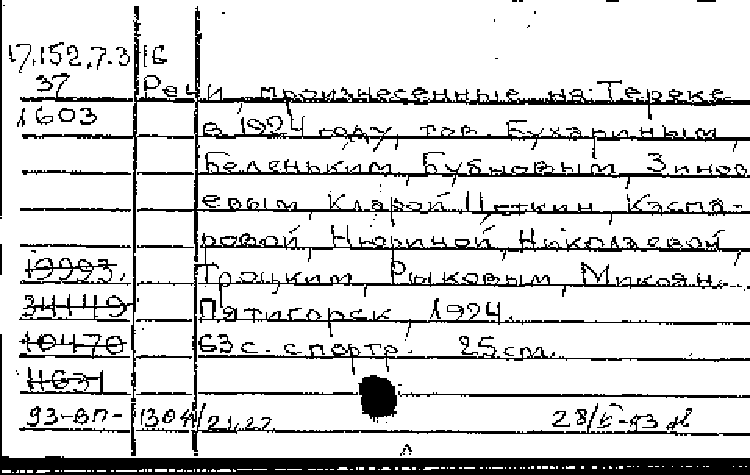 17.152.7.3 16
37 Речи, произнесенные на Тереке
1603 в 1924 году, тов. Бухариным,
Беленьким, Бубновым, Зинов
евым, Кларой Цеткин, Каспа-
ровой, Нюриной, Николаевой,
19993. Троцким, Рыковым, Микоян.
34449 Пятигорск, 1924.
10470 63 с. с портр. 25 cm.
11631
93-вп- 1304/21,27 28/6-93